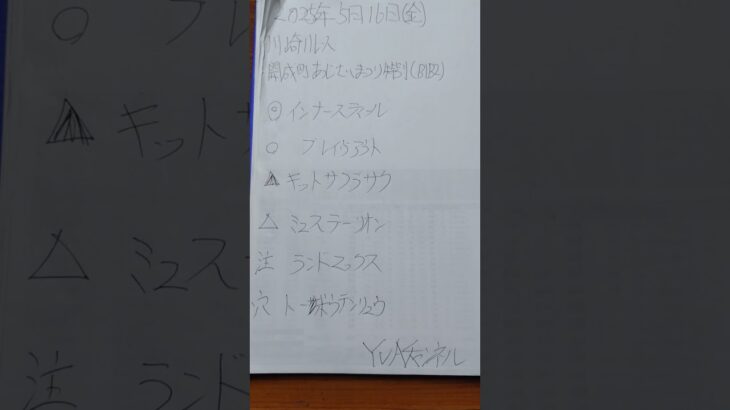 2025年5月16日(金)
川崎11レス
開成町あじさいまつり特別(B1B2)
◎ インナースマール
○ ブレイヴアウト
▲ キットサクラサク
△ ミュステーリオン
注 ランドマックス
穴 トーセンボウテンリュウ
YUAチャンネル